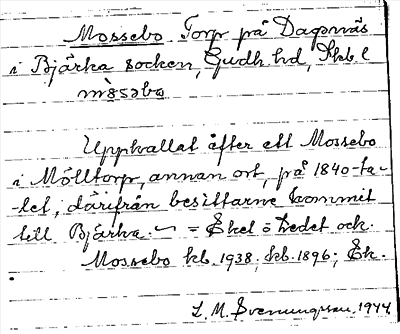 Mossebo Torp på Dagsnäs
i Bjärka socken, Gudh. hd, Skb. l
mòsəbo
Uppkallat åfter ett Mossebo
i Mölltorp, annan ort, på 1840-ta-
-let, därifrån besittarne kommit
till Bjärka. = Ekelöhedet och
Mossebo kb. 1938; kb. 1896; Ek.
L. M. Svenungsson, 1944